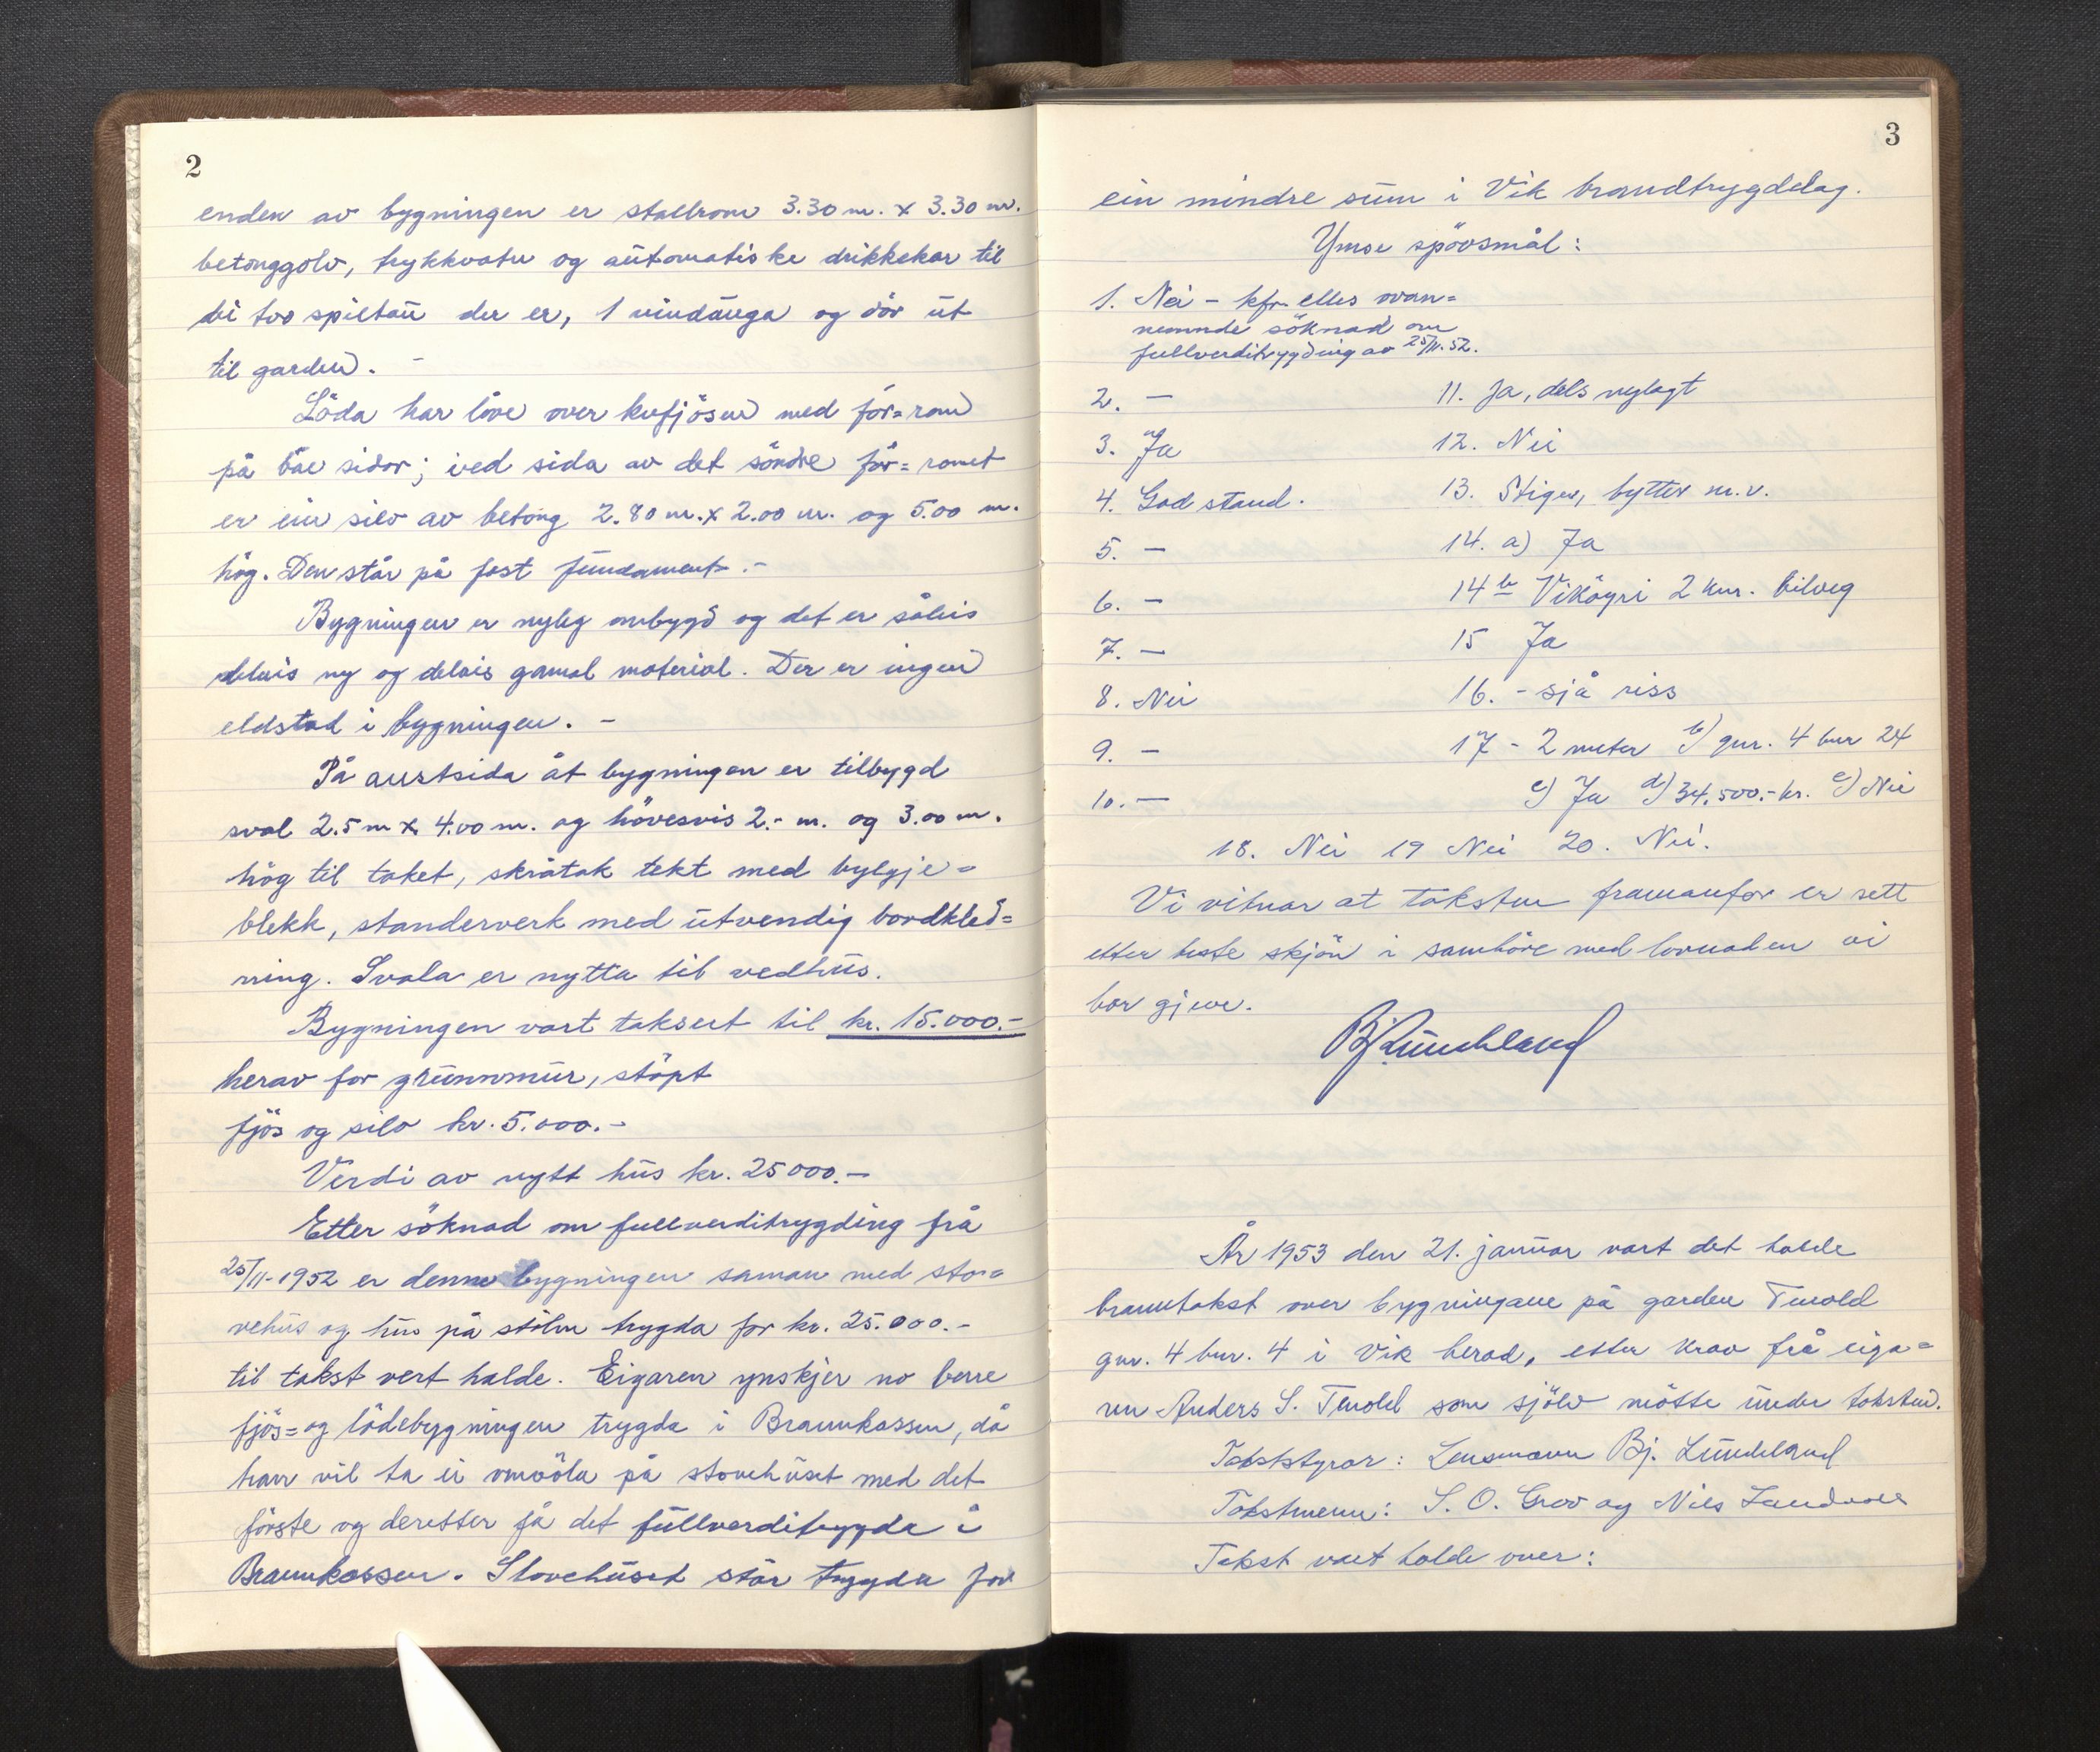 2
enden av bygningen er stallrom 3.30 m. x 3.30 m.
betonggolv, trykkvatn og automatiske drikkekar til
dei tvo spiltau der er, 1 vindauga og dör ut
til garden. -
Löda har löve over kufjösen med fór=rom
på båe sidor; ved sida av det söndre fór=romet
er ein silo av betong 2.80 m. x 2.00 m. og 5.00 m.
hög. Den står på fast fundament. -
Bygningen er nyleg ombygd og det er såleis
delvis ny og delvis gamal material. Der er ingen
eldstad i bygningen. -
På austsida åt bygningen er tilbygd
sval 2.5 m x 4.00 m. og hövesvis 2.- m. og 3.00 m.
hög til taket, skråtak tekt med bylgje=
blekk, standerverk med utvendig bordkled=
ning. Svala er nytta til vedhus.
Bygningen vart taksert til kr. 15.000.-
herav for grunnmur, stöpt
fjös og silo kr. 5.000.-
Verdi av nytt hus kr. 25000.-
Etter söknad om fullverditrygding frå
25/11-1952 er denne bygningen saman med sto=
vehus og hus på stölen trygda for kr. 25.000.-
til takst vert halde. Eigaren ynskjer no berre
fjös= og lödebygningen trygda i Brannkassen, då
han vil ta ei omvöla på stovehuset med det
förste og deretter få det fullverditrygda i
Brannkassen. Stovehuset står trygda for
3
ein mindre sum i Vik brandtrygdelag.
Ymse spörsmål:
1. Nei - kfr. elles ovan=
nemnde söknad om
fullverditrygding av 25/11.52.
2. -
3. Ja
4. God stand.
5. -
6. -
7. -
8. Nei
9. -
10. -
11. Ja, dels nylagt
12. Nei
13. Stigar, bytter m.v.
14. a) Ja
14 b Vikøyri 2 km. bilveg
15 Ja
16. - sjå riss
17 - 2 meter b) gnr. 4 bnr 24
c) Ja d) 34.500.- kr. e) Nei
18. Nei 19 Nei 20. Nei.
Vi vitnar at taksten framanfor er sett
etter beste skjön i samhöve med lovnaden vi
har gjeve.
Bj Lundeland
År 1953 den 21. januar vart det halde
branntakst over bygningane på garden Tenold
gnr. 4 bnr. 4 i Vik herad, etter krav frå eiga=
ren Anders S. Tenold som sjölv mötte under taksten.
Takststyrar: Lensmann Bj. Lundeland
Takstmenn: S. O. Grov og Nils
Takst vart halde over: